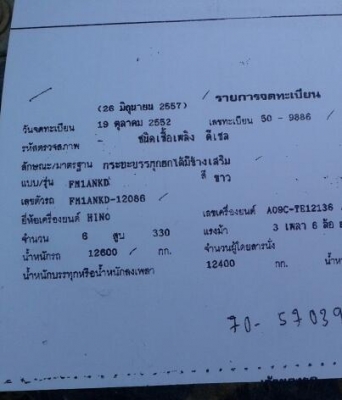 (26 มิถุนายน 2557) / รายการจดทะเบียน
วันจดทะเบียน 19 ตุลาคม 2552 เลขทะเบียน 50 - 9886 /
รหัสตรวจสภาพ - ชนิดเชื้อเพลิง ดีเซล
ลักษณะ/มาตรฐาน กระบะบรรทุกยกได้มีข้างเสริม
แบบ/รุ่น FM1ANKD สี ขาว
เลขตัวรถ FM1ANKD-12086 /
ยี่ห้อเครื่องยนต์ HINO เลขเครื่องยนต์ A09C-TE12136
จำนวน 6 สูบ 330 แรงม้า 3 เพลา 6 ล้อ
น้ำหนักรถ 12600 / กก. จำนวนผู้โดยสารนั่ง
น้ำหนักบรรทุกหรือน้ำหนักลงเพลา 12400 กก.
70- 57039